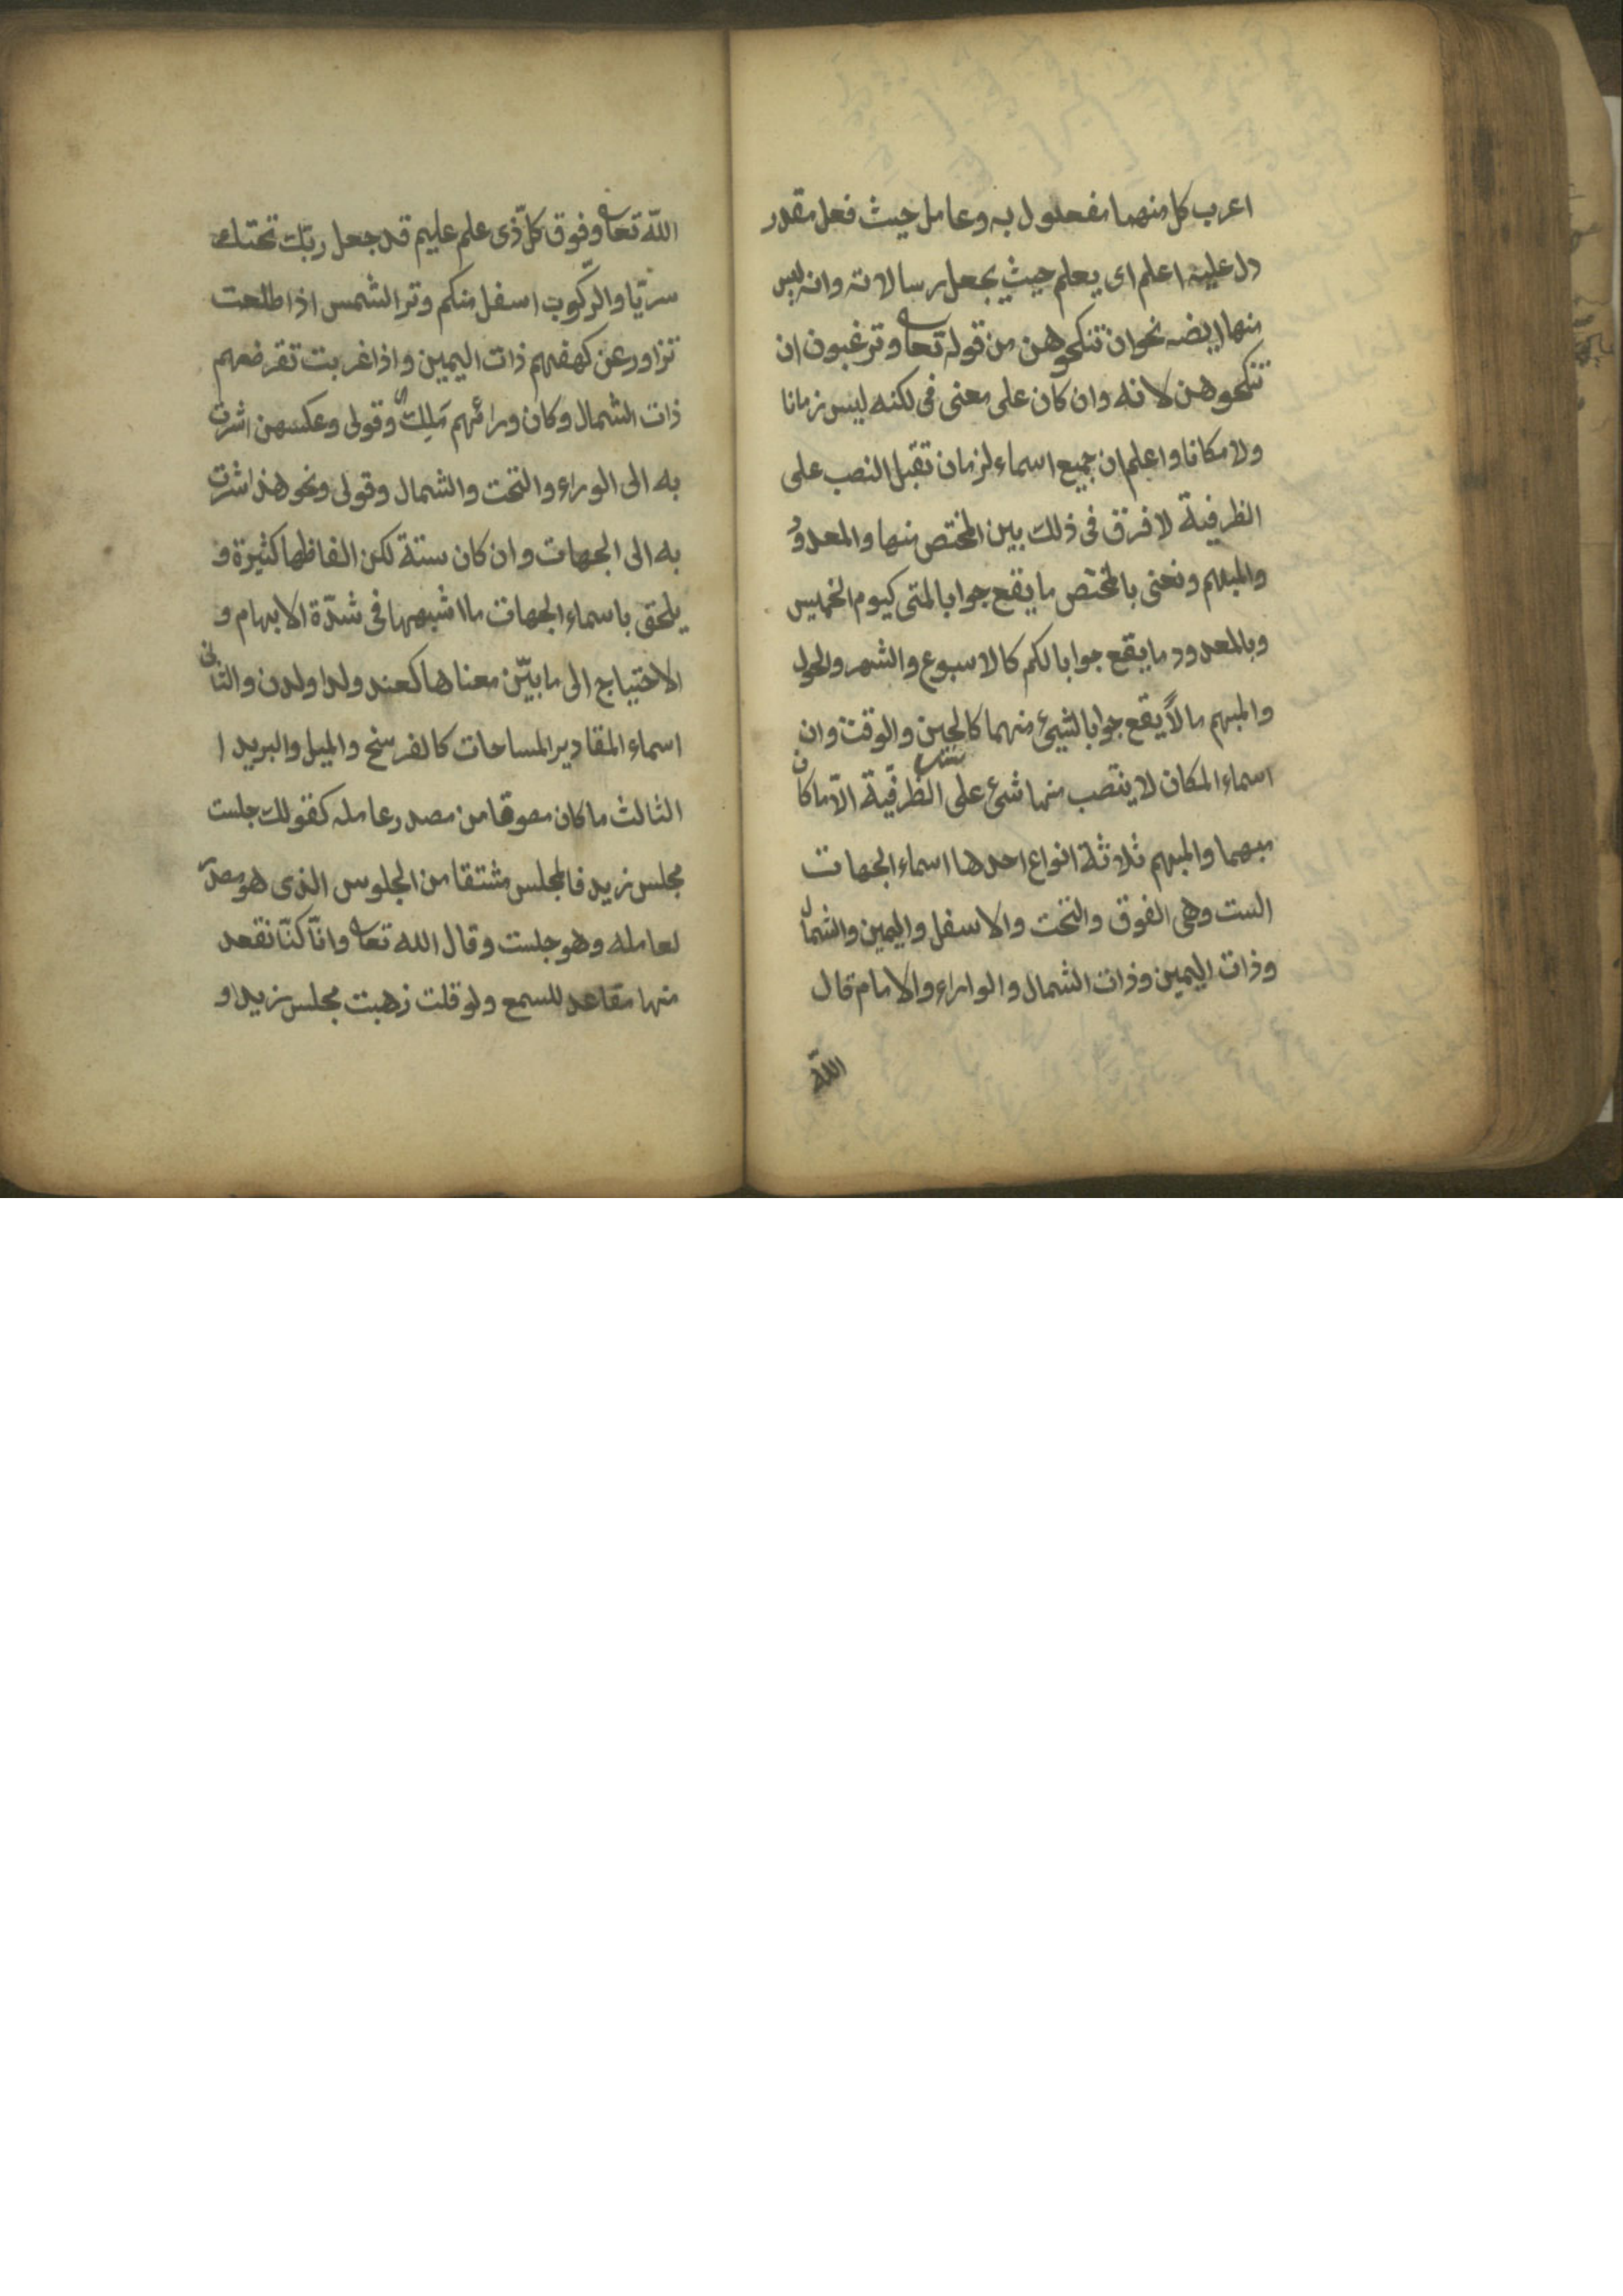 اعرب كل منهما مفعول به وعامل حيث فعل مقدر
دل عليه اعلم اى يعلم حيث يجعل رسالاته وانه ليس
منها ايضه نحو ان تنكحوهن من قوله تعا وترغبون ان
تنكحوهن لانه وان كان على معنى فى لكنه ليس زمانا
ولا مكانا واعلم ان جميع اسماء لزمان تقبل النصب على
الظرفية لا فرق فى ذلك بين المختص منها والمعدود
والمبهم ونعنى بالمختص ما يقع جوابا لمتى كيوم الخميس
وبالمعدود ما يقع جوابا لكم كالاسبوع والشهر والحول
والمبهم ما لا يقع جوابا لشيئ منهما كالحين والوقت وان
اسماء المكان لا ينتصب منها شئ على الظرفية الا ما كان
مبهما والمبهم ثلاثة انواع احدها اسماء الجهات
الست وهى الفوق والتحت والاسفل واليمين والشمال
وذات اليمين وذات الشمال والوراء والامام قال
الله
الله تعا وفوق كل ذى علم عليم قد جعل ربك تحتك
سريا والركوب اسفل منكم وتر الشمس اذا طلعت
تزاور عن كهفهم ذات اليمين واذا غربت تقرضهم
ذات الشمال وكان ورائهم ملك وقولى وعكسهن اشرت
به الى الوراء والتحت والشمال وقولى ونحو هذا اشرت
به الى الجهات وان كان ستة لكن الفاظها كثيرة و
يلحق باسماء الجهات ما اشبهها فى شدة الابهام و
الاحتياج الى ما يبين معناها كعند ولدا ولدن والثانى
اسماء المقادير المساحات كالفرسخ والميل والبريد ا
الثالث ما كان مصوقا من مصدر عامله كقولك جلست
مجلس زيد فالمجلس مشتقا من الجلوس الذى هو مصدر
لعامله وهو جلست وقال الله تعا وانا كنا نقعد
منها مقاعد للسمع ولو قلت ذهبت مجلس زيد او